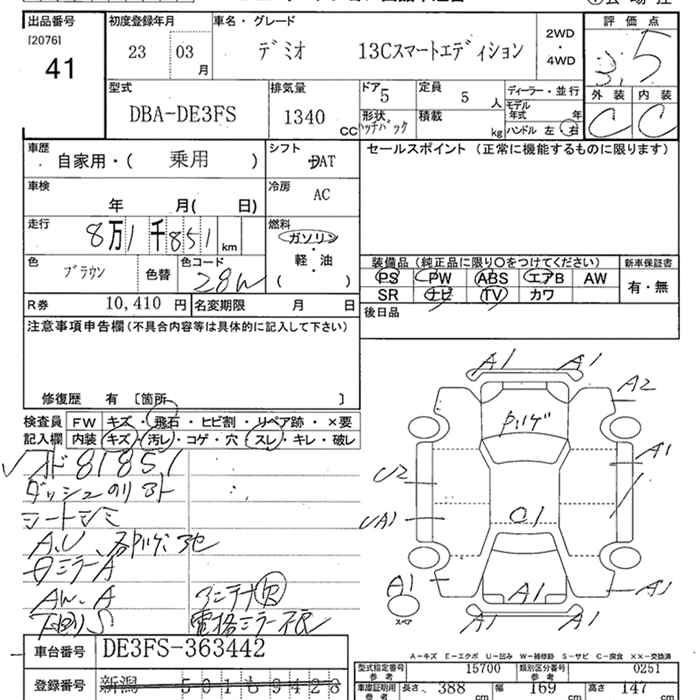 出品番号 初度登録年月 車名・グレード 評価点
[2076]
41 23 03月 デミオ 13Cスマートエディション 2WD・4WD 3.5
型式 排気量 ドア 5 定員 5 人 ディーラー・並行 外装 内装
DBA-DE3FS 1340 CC 形状 ハッチバック 積載 kg モデル年式 年 C C
ハンドル 左 右
車歴 自家用・( 乗用 ) シフト DAT セールスポイント (正常に機能するものに限ります)
車検 年 月( 日) 冷房 AC
走行 8万1千851 km 燃料 ガソリン・軽・油 ( )
色 ブラウン 色替 色コード 28W
装備品 (純正品に限り○をつけてください) 新車保証書
PS PW ABS エアB AW 有・無
SR ナビ TV カワ
R券 10,410 円 名変期限 月 日 後日品
注意事項申告欄 (不具合内容等は具体的に記入して下さい)
修復歴 有 〔箇所 〕
検査員記入欄 FW キズ・飛石・ヒビ割・リペア跡・×要
内装 キズ・汚レ・コゲ・穴・スレ・キレ・破レ
81851
シートシミ
A.U
ミラーA
AW.A アンテナ
下廻りS 電格ミラー不良
A1 A1
A2
A1
U2
UA1
A1
A1
A1
A1 A1
スペア
車台番号 DE3FS-363442
登録番号 新潟
A-キズ E-エクボ U-凹み W-補修跡 S-サビ C-腐食 ××-交換済
型式指定番号 参考 15700 類別区分番号 参考 0251
車庫証明用 参考 長さ 388 cm 幅 169 cm 高さ 147 cm